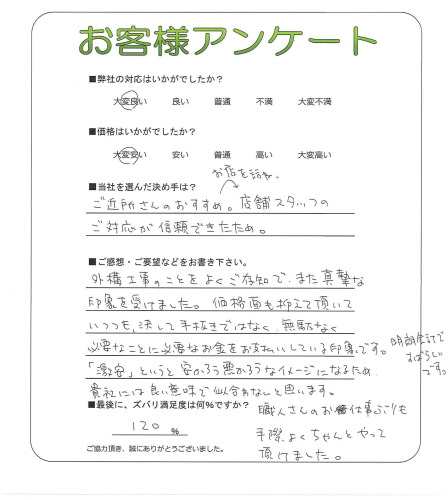 お客様アンケート
■弊社の対応はいかがでしたか?
大変良い 良い 普通 不満 大変不満
■価格はいかがでしたか?
大変安い 安い 普通 高い 大変高い
お店を訪ね、
■当社を選んだ決め手は?
ご近所さんのおすすめ。店舗スタッフの
ご対応が信頼できたため。
■ご感想・ご要望などをお書き下さい。
外構工事のことをよくご存知で、また真摯な
印象を受けました。価格面も抑えて頂いて
いつつも、決して手抜きではなく、無駄なく
必要なことに必要なお金をお支払いしている印象です。
明朗会計で
すばらしい
です。
「激安」というと安かろう悪かろうなイメージになるため、
貴社には良い意味で似合わないと思います。
■最後に、ズバリ満足度は何%ですか?
120 %
職人さんのお仕事ぶりも
手際よくちゃんとやって
頂けました。
ご協力頂き、誠にありがとうございました。